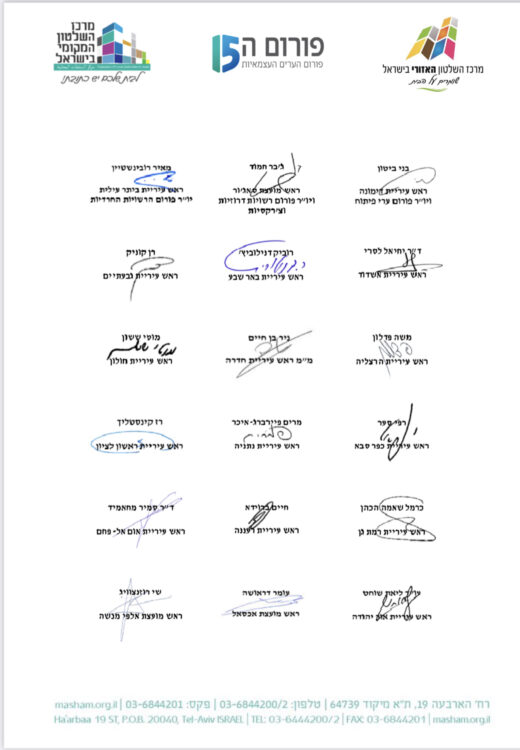 מרכז השלטון האזורי בישראל
שומרים על הבית
פורום ה15
פורום הערים העצמאיות
מרכז
השלטון
המקומי
בישראל
לבית שלכם יש כתובת!
בני ביטון
ראש עיריית דימונה
ויו"ר פורום ערי פיתוח
ג'בר חמוד
ראש מועצת סאג'ור
ויו"ר פורום רשויות דרוזיות
וצ'רקסיות
מאיר רובינשטיין
ראש עיריית ביתר עילית
יו"ר פורום הרשויות החרדיות
ד"ר יחיאל לסרי
ראש עיריית אשדוד
רוביק דנילוביץ'
ראש עיריית באר שבע
רן קוניק
ראש עיריית גבעתיים
משה פדלון
ראש עיריית הרצליה
ניר בן חיים
מ"מ ראש עיריית חדרה
מוטי ששון
ראש עיריית חולון
רפי סער
ראש עיריית כפר סבא
מרים פיירברג-איכר
ראש עיריית נתניה
רז קינסטליך
ראש עיריית ראשון לציון
כרמל שאמה הכהן
ראש עיריית רמת גן
חיים ברוידא
ראש עיריית רעננה
ד"ר סמיר מחאמיד
ראש עיריית אום אל-פחם
עו"ד ליאת שוחט
ראש עיריית אור יהודה
עומר דראושה
ראש מועצת אכסאל
שי רוזנצוויג
ראש מועצת אלפי מנשה
רח' הארבעה 19, ת"א מיקוד 64739 | טלפון: 03-6844200/2 | פקס: 03-6844201 | masham.org.il
Ha'arbaa 19 ST, P.O.B. 20040, Tel-Aviv ISRAEL | TEL: 03-6444200/2 | FAX: 03-6844201 | masham.org.il